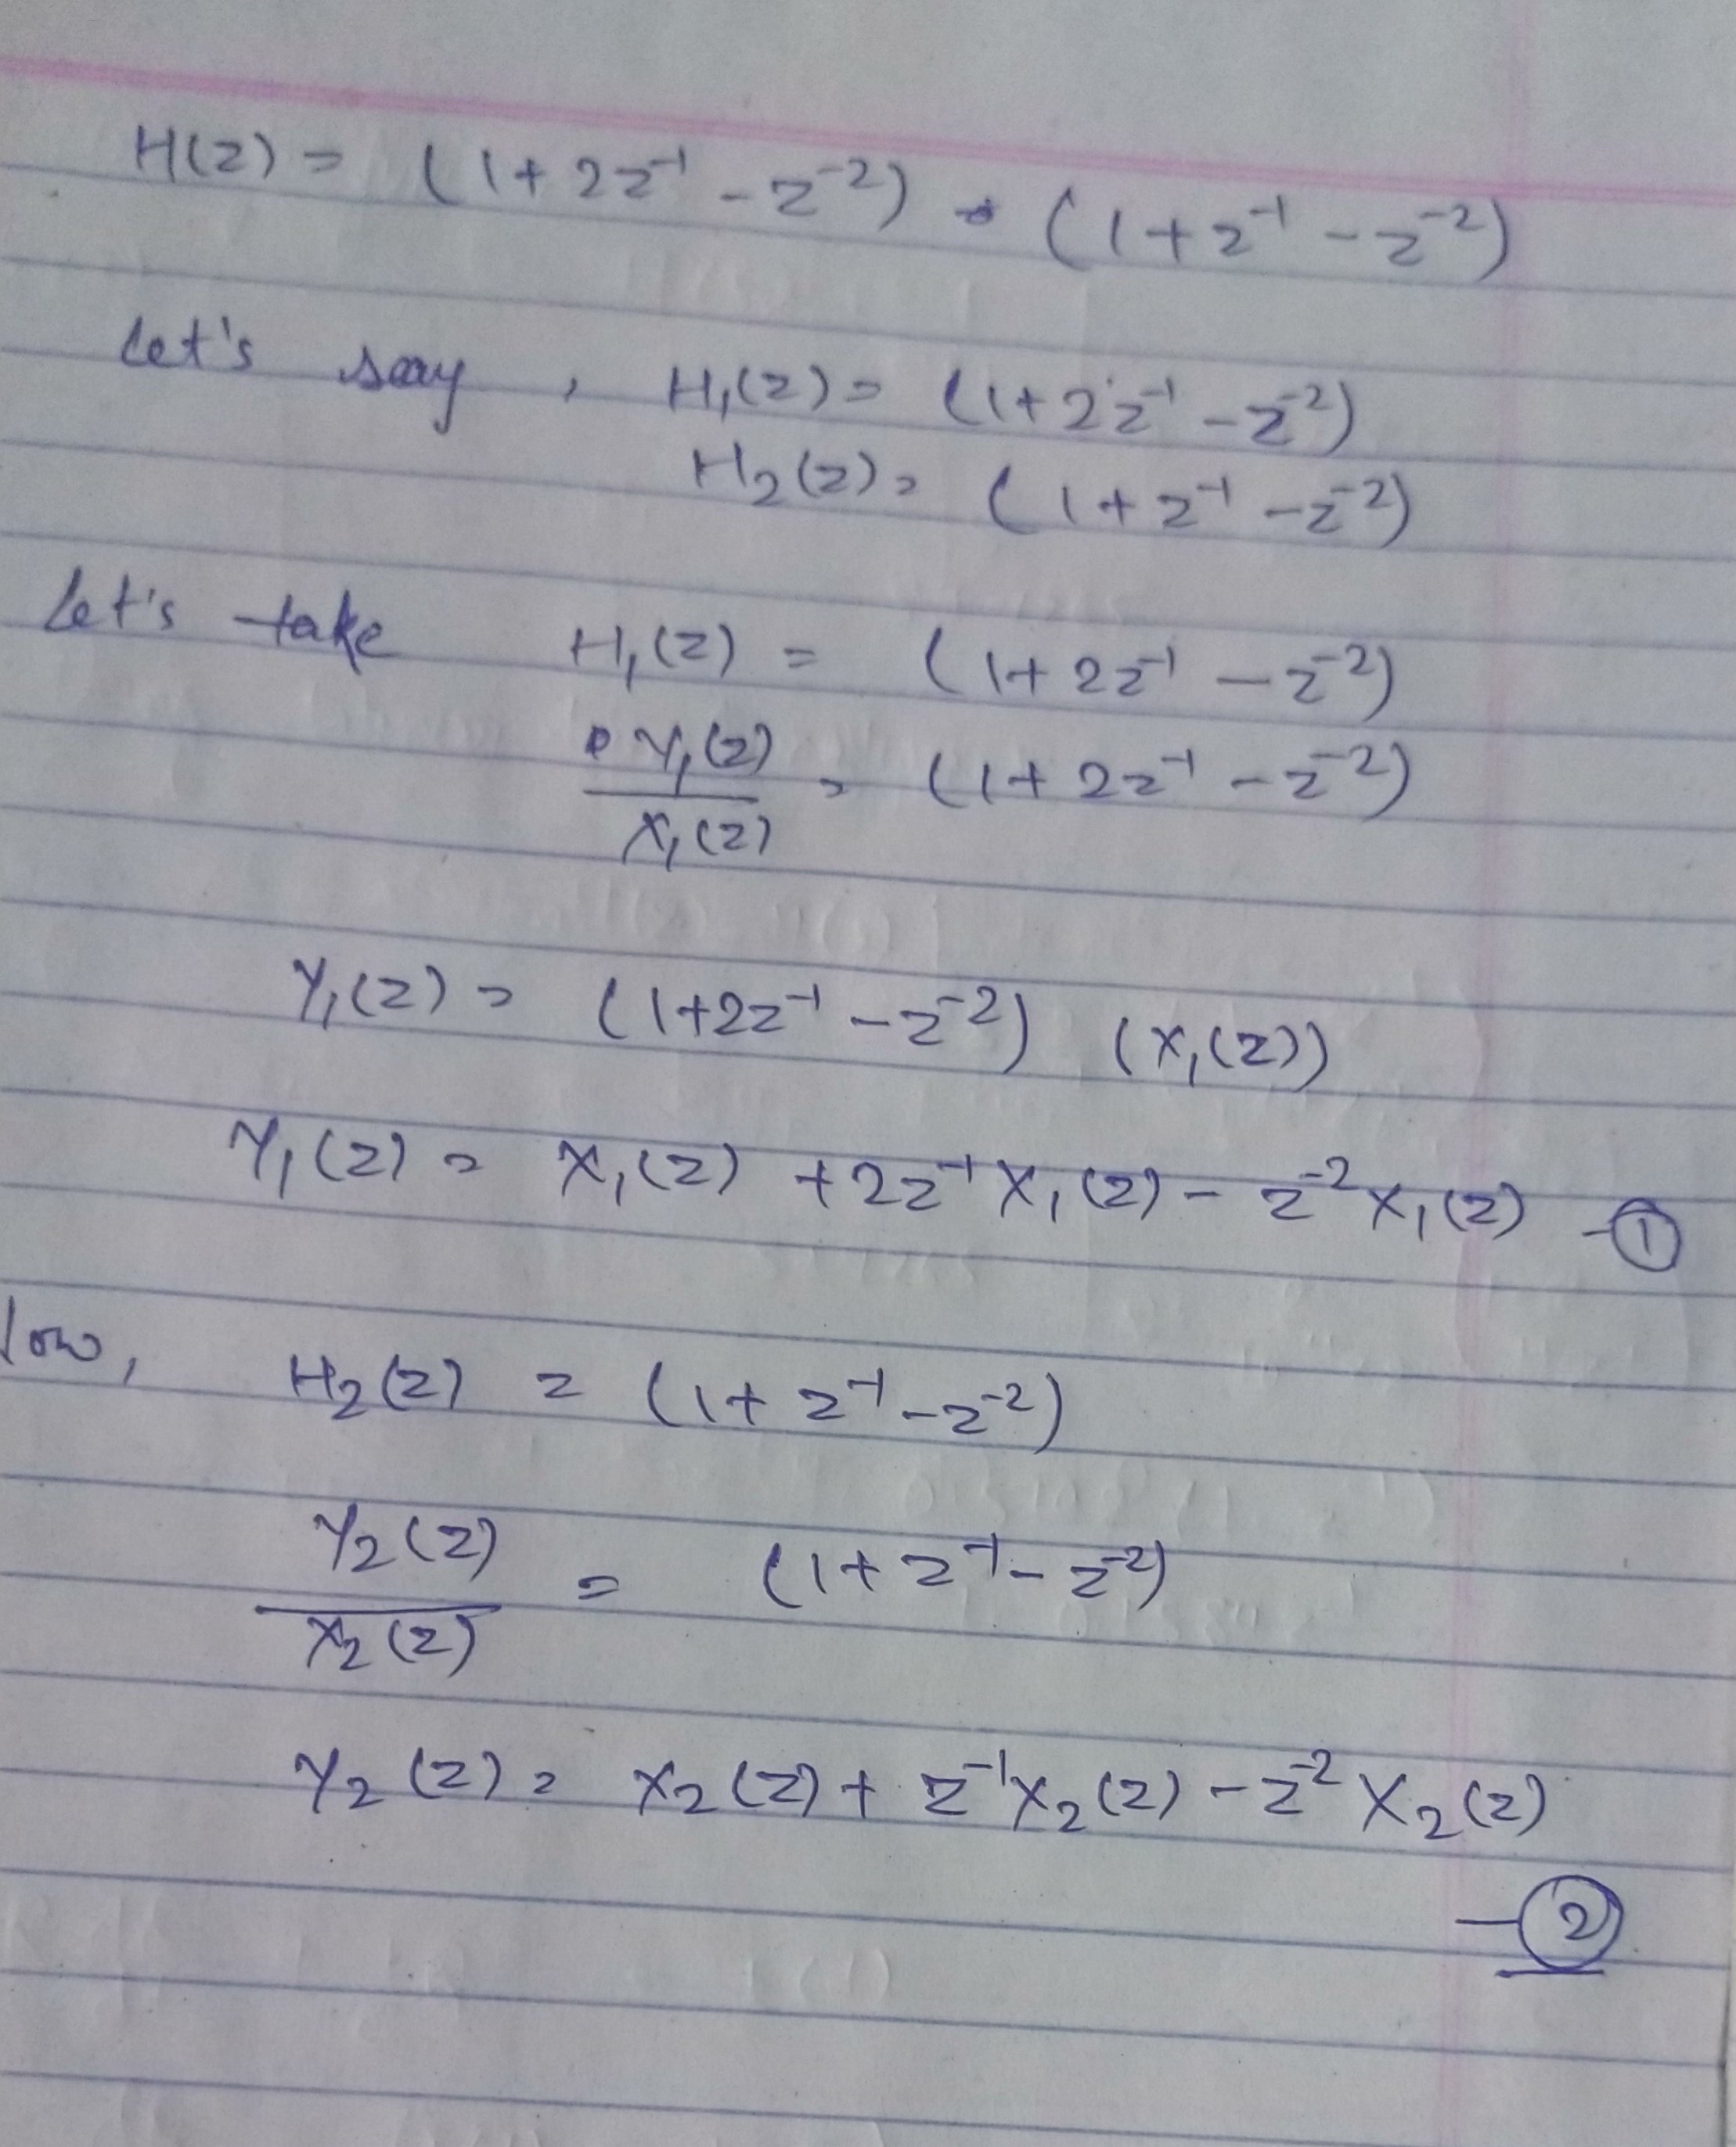 H(z) = (1+2z⁻¹ - z⁻²) • (1+z⁻¹ - z⁻²)
Let's say, H₁(z) = (1+2z⁻¹ - z⁻²)
H₂(z) = (1+z⁻¹ - z⁻²)
Let's take H₁(z) = (1+2z⁻¹ - z⁻²)
Y₁(z)/X₁(z) = (1+2z⁻¹ - z⁻²)
Y₁(z) = (1+2z⁻¹ - z⁻²) (X₁(z))
Y₁(z) = X₁(z) + 2z⁻¹X₁(z) - z⁻²X₁(z) - ①
Now, H₂(z) = (1+z⁻¹ - z⁻²)
Y₂(z)/X₂(z) = (1+z⁻¹ - z⁻²)
Y₂(z) = X₂(z) + z⁻¹X₂(z) - z⁻²X₂(z)
- ②